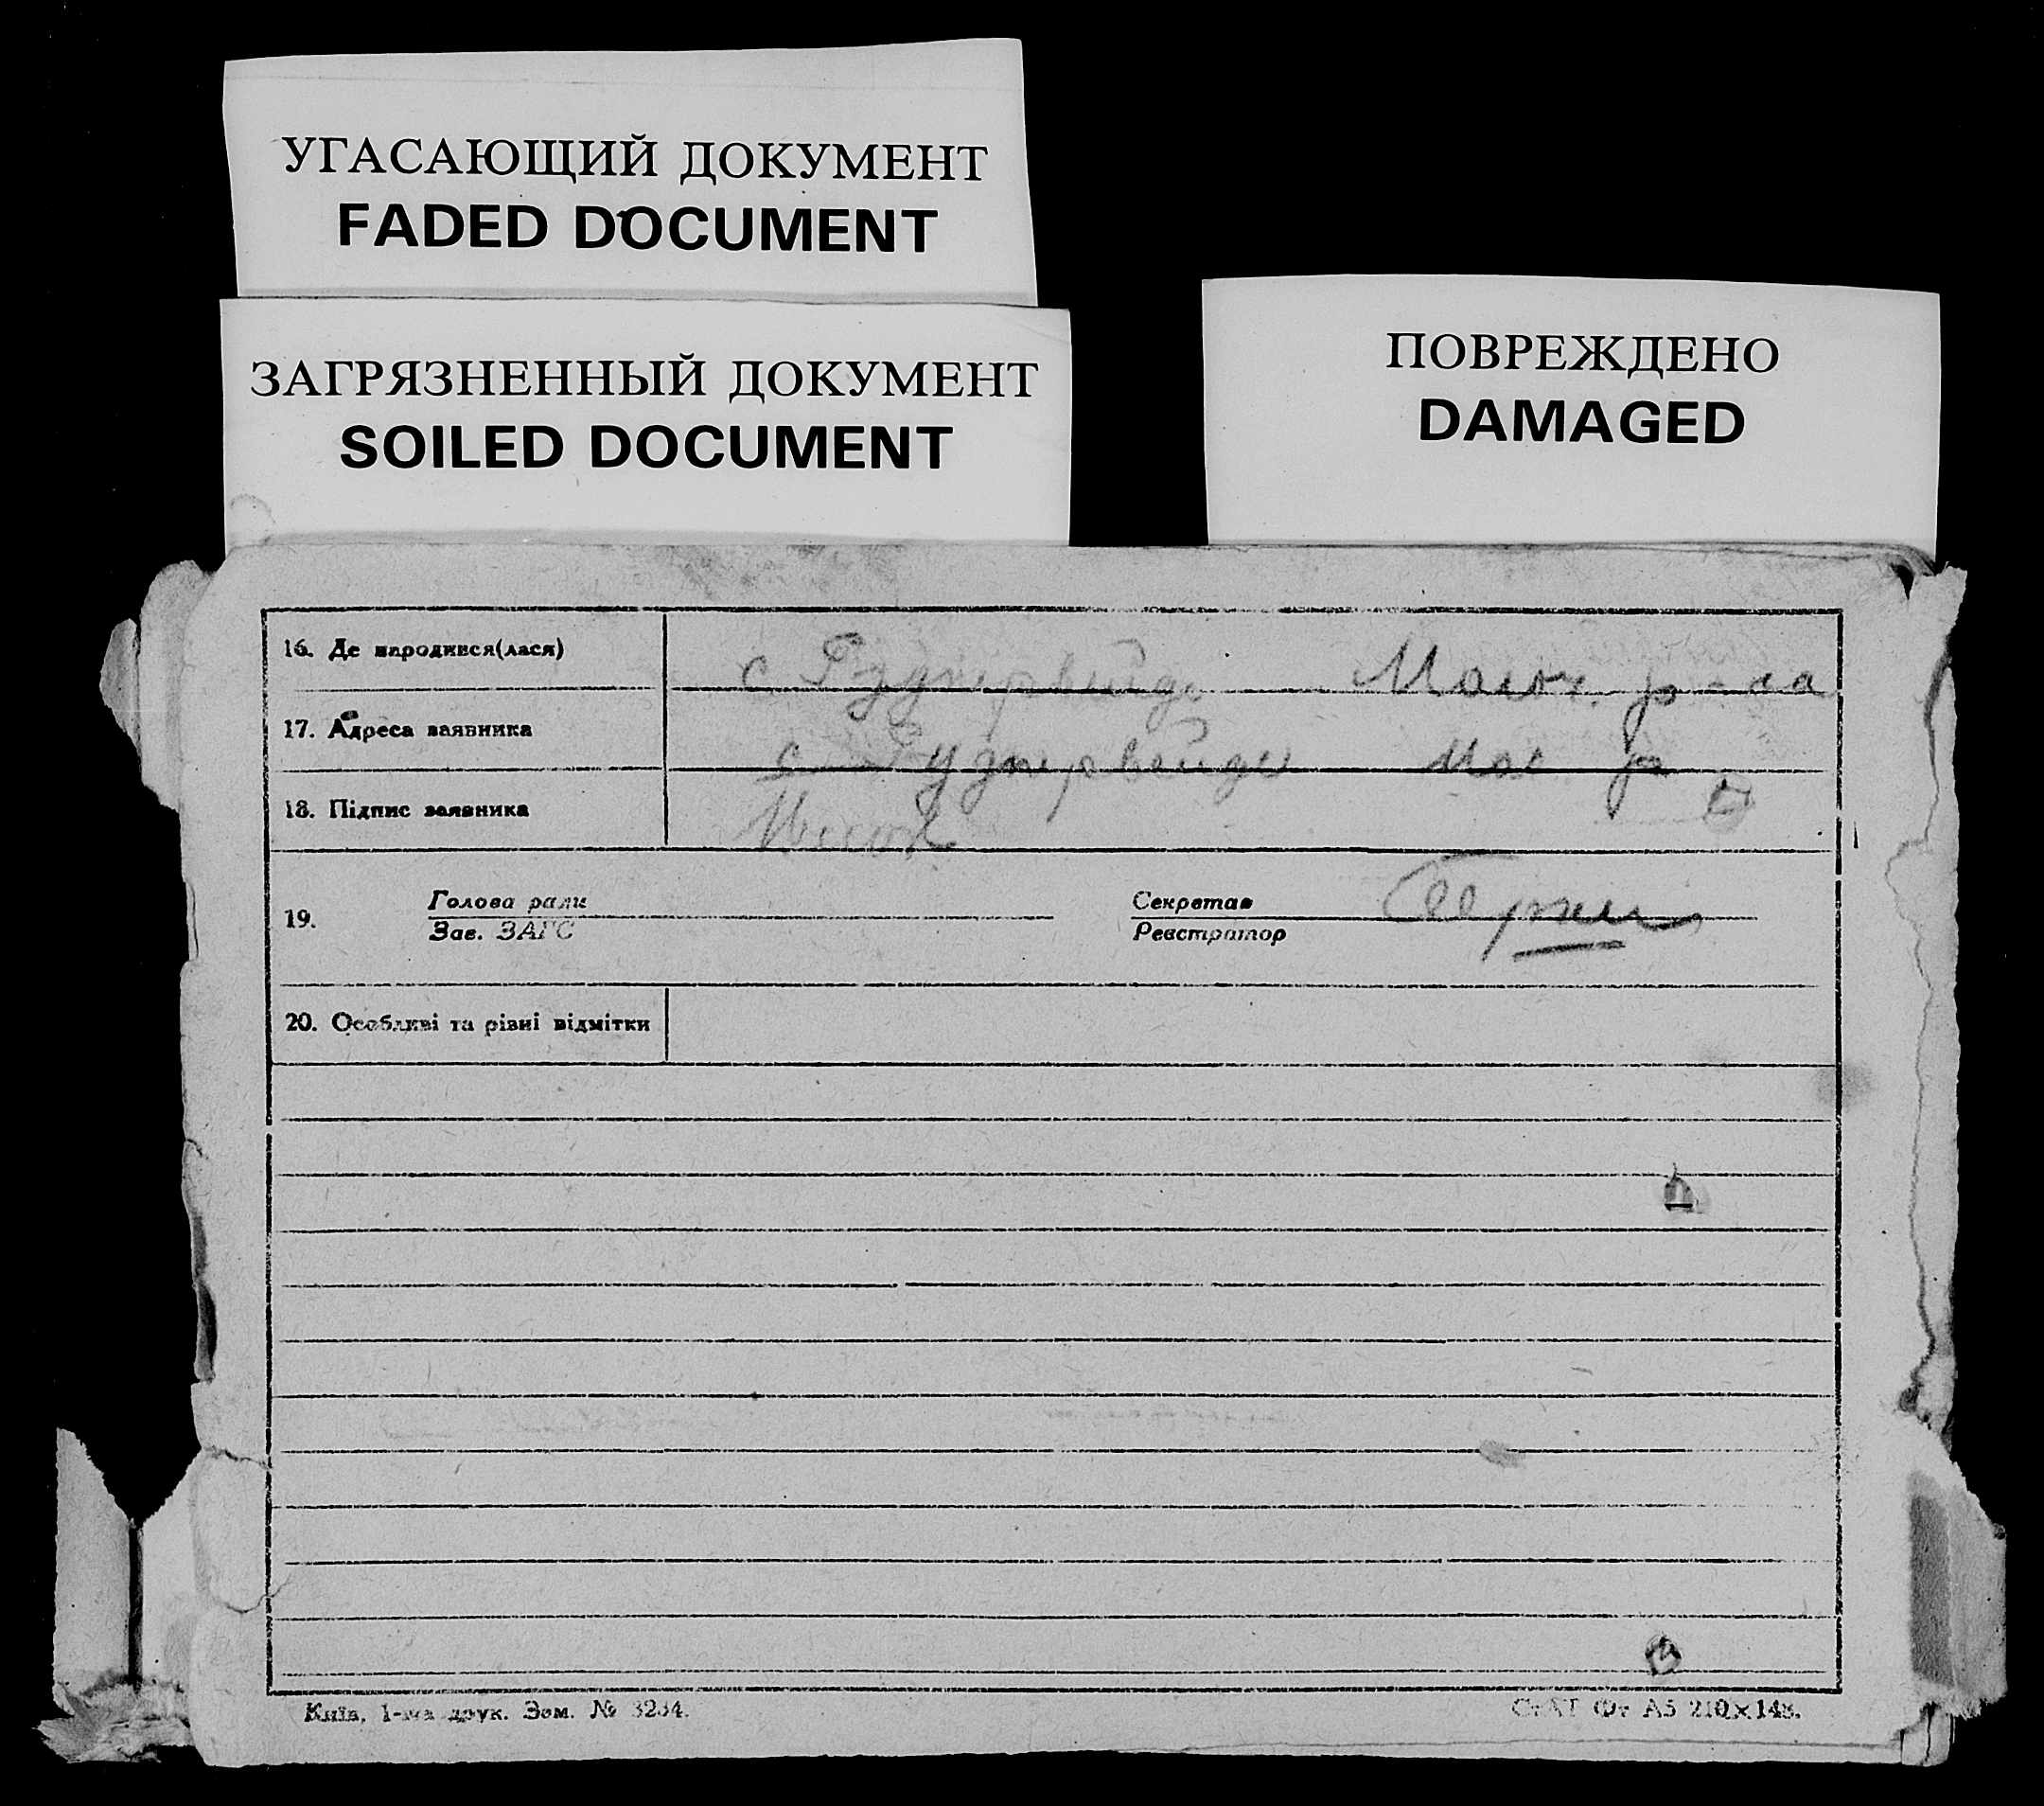 УГАСАЮЩИЙ ДОКУМЕНТ
FADED DOCUMENT
ЗАГРЯЗНЕННЫЙ ДОКУМЕНТ
SOILED DOCUMENT
ПОВРЕЖДЕНО
DAMAGED
16. Де народився(лася)
с Молоч. р-на
17. Адреса заявника
с Мол р
18. Підпис заявника
19. Голова ради Секретар
Зав. ЗАГС Реєстратор
20. Особливі та різні відмітки
Київ, 1-ша друк. Зам. № 3234.
СтАТ Фт А5 210×148.